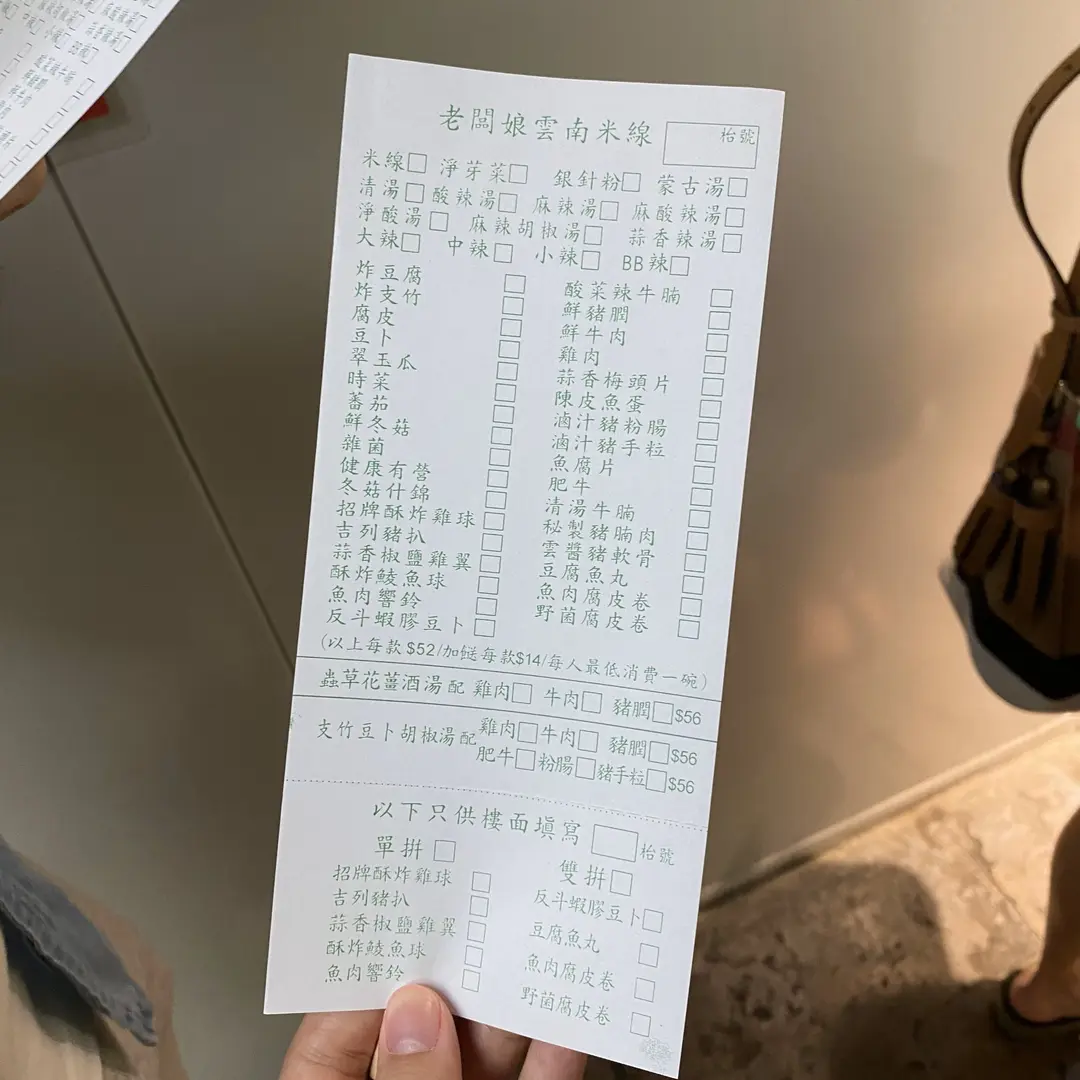 老闆娘雲南米線 枱號
米線□ 淨芽菜□ 銀針粉□ 蒙古湯□
清湯□ 酸辣湯□ 麻辣湯□ 麻酸辣湯□
淨酸湯□ 麻辣胡椒湯□ 蒜香辣湯□
大辣□ 中辣□ 小辣□ BB辣□
炸豆腐 □
炸支竹 □
腐皮 □
豆卜 □
翠玉瓜 □
時菜 □
蕃茄 □
鮮冬菇 □
雜菌 □
健康有營 □
冬菇什錦 □
招牌酥炸雞球 □
吉列豬扒 □
蒜香椒鹽雞翼 □
酥炸鯪魚球 □
魚肉響鈴 □
反斗蝦膠豆卜 □
酸菜辣牛腩 □
鮮豬膶 □
鮮牛肉 □
雞肉 □
蒜香梅頭片 □
陳皮魚蛋 □
滷汁豬粉腸 □
滷汁豬手粒 □
魚腐片 □
肥牛 □
清湯牛腩 □
秘製豬腩肉 □
雲醬豬軟骨 □
豆腐魚丸 □
魚肉腐皮卷 □
野菌腐皮卷 □
(以上每款$52/加餸每款$14/每人最低消費一碗)
蟲草花薑酒湯配 雞肉□ 牛肉□ 豬膶□$56
支竹豆卜胡椒湯配 雞肉□ 牛肉□ 豬膶□$56
肥牛□ 粉腸□ 豬手粒□$56
以下只供樓面填寫 枱號
單拼□
招牌酥炸雞球 □
吉列豬扒 □
蒜香椒鹽雞翼 □
酥炸鯪魚球 □
魚肉響鈴 □
雙拼□
反斗蝦膠豆卜□
豆腐魚丸 □
魚肉腐皮卷 □
野菌腐皮卷 □